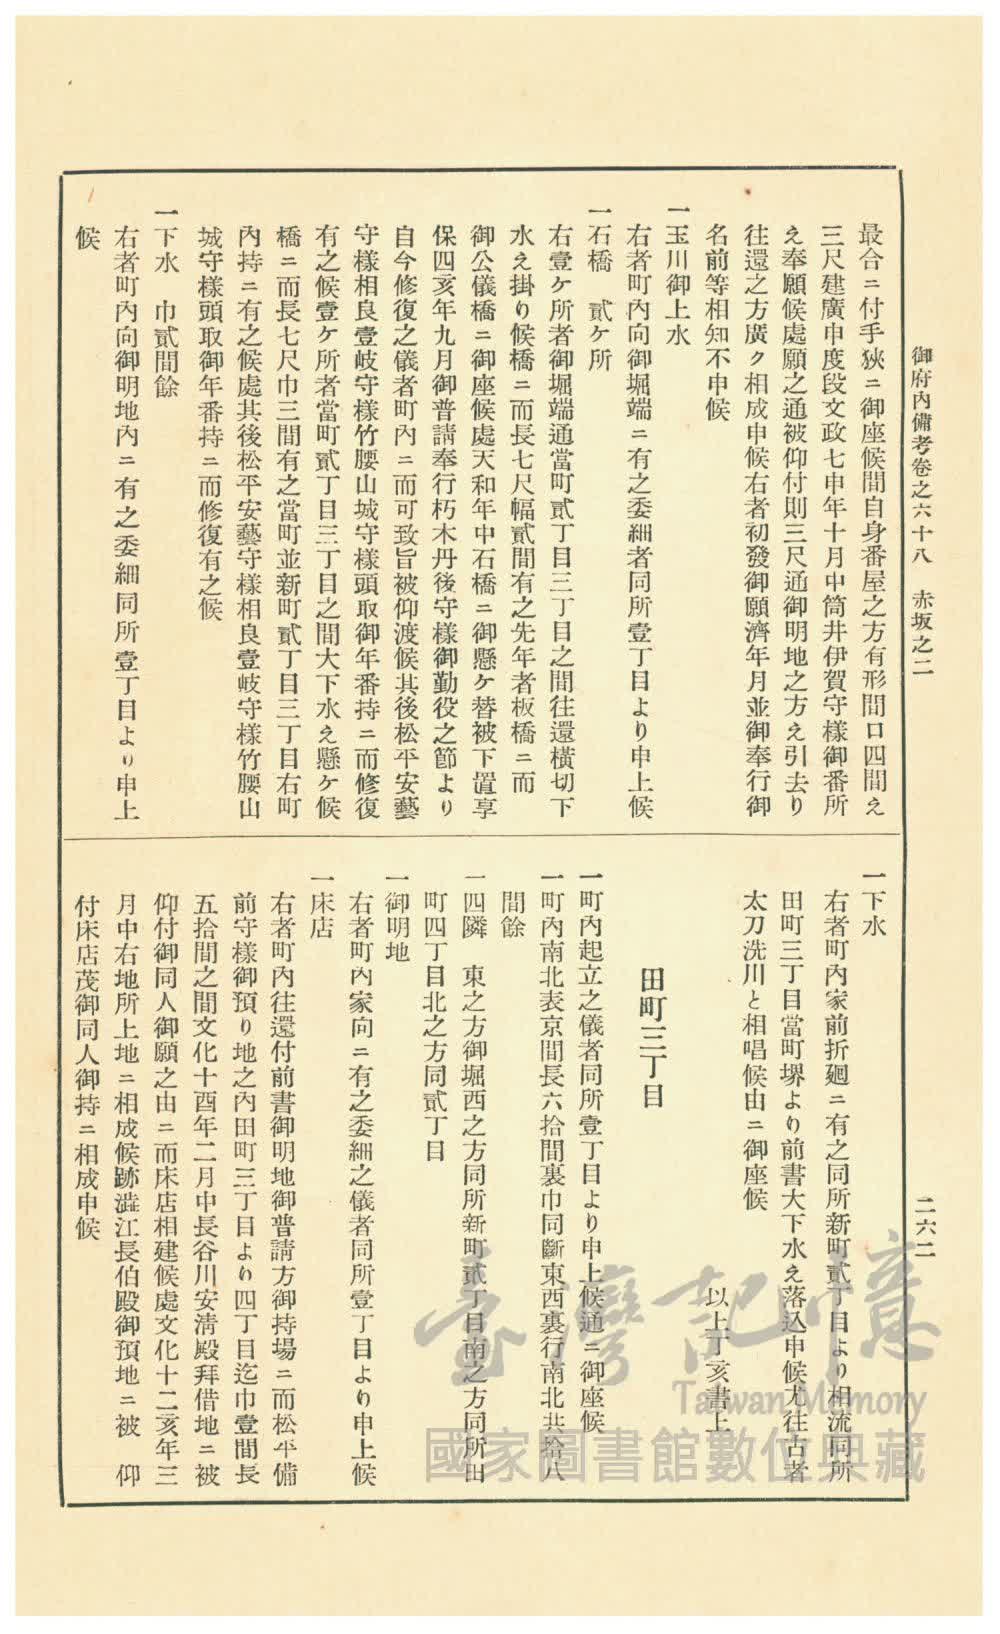 御府內備考卷之六十八 赤坂之二
二六二
最合ニ付手狹ニ御座候間自身番屋之方有形間口四間え
三尺建廣申度段文政七申年十月中筒井伊賀守樣御番所
え奉願候處願之通被仰付則三尺通御明地之方え引去り
往還之方廣ク相成申候右者初發御願濟年月並御奉行御
名前等相知不申候
一玉川御上水
右者町內向御堀端ニ有之委細者同所壹丁目より申上候
一石橋 貳ケ所
右壹ケ所者御堀端通當町貳丁目三丁目之間往還橫切下
水え掛り候橋ニ而長七尺幅貳間有之先年者板橋ニ而
御公儀橋ニ御座候處天和年中石橋ニ御懸ケ替被下置享
保四亥年九月御普請奉行朽木丹後守樣御勤役之節より
自今修復之儀者町內ニ而可致旨被仰渡候其後松平安藝
守樣相良壹岐守樣竹腰山城守樣頭取御年番持ニ而修復
有之候壹ケ所者當町貳丁目三丁目之間大下水え懸ケ候
橋ニ而長七尺巾三間有之當町並新町貳丁目三丁目右町
內持ニ有之候處其後松平安藝守樣相良壹岐守樣竹腰山
城守樣頭取御年番持ニ而修復有之候
一下水 巾貳間餘
右者町內向御明地內ニ有之委細同所壹丁目より申上
候
一下水
右者町內家前折廻ニ有之同所新町貳丁目より相流同所
田町三丁目當町堺より前書大下水え落込申候尤往古者
太刀洗川と相唱候由ニ御座候
以上丁亥書上
田町三丁目
一町內起立之儀者同所壹丁目より申上候通ニ御座候
一町內南北表京間長六拾間裏巾同斷東西裏行南北共拾八
間餘
一四隣 東之方御堀西之方同所新町貳丁目南之方同所田
町四丁目北之方同貳丁目
一御明地
右者町內家向ニ有之委細之儀者同所壹丁目より申上候
一床店
右者町內往還付前書御明地御普請方御持場ニ而松平備
前守樣御預り地之內田町三丁目より四丁目迄巾壹間長
五拾間之間文化十酉年二月中長谷川安清殿拜借地ニ被
仰付御同人御願之由ニ而床店相建候處文化十二亥年三
月中右地所上地ニ相成候跡澁江長伯殿御預地ニ被 仰
付床店茂御同人御持ニ相成申候
臺灣記憶
Taiwan Memory
國家圖書館數位典藏